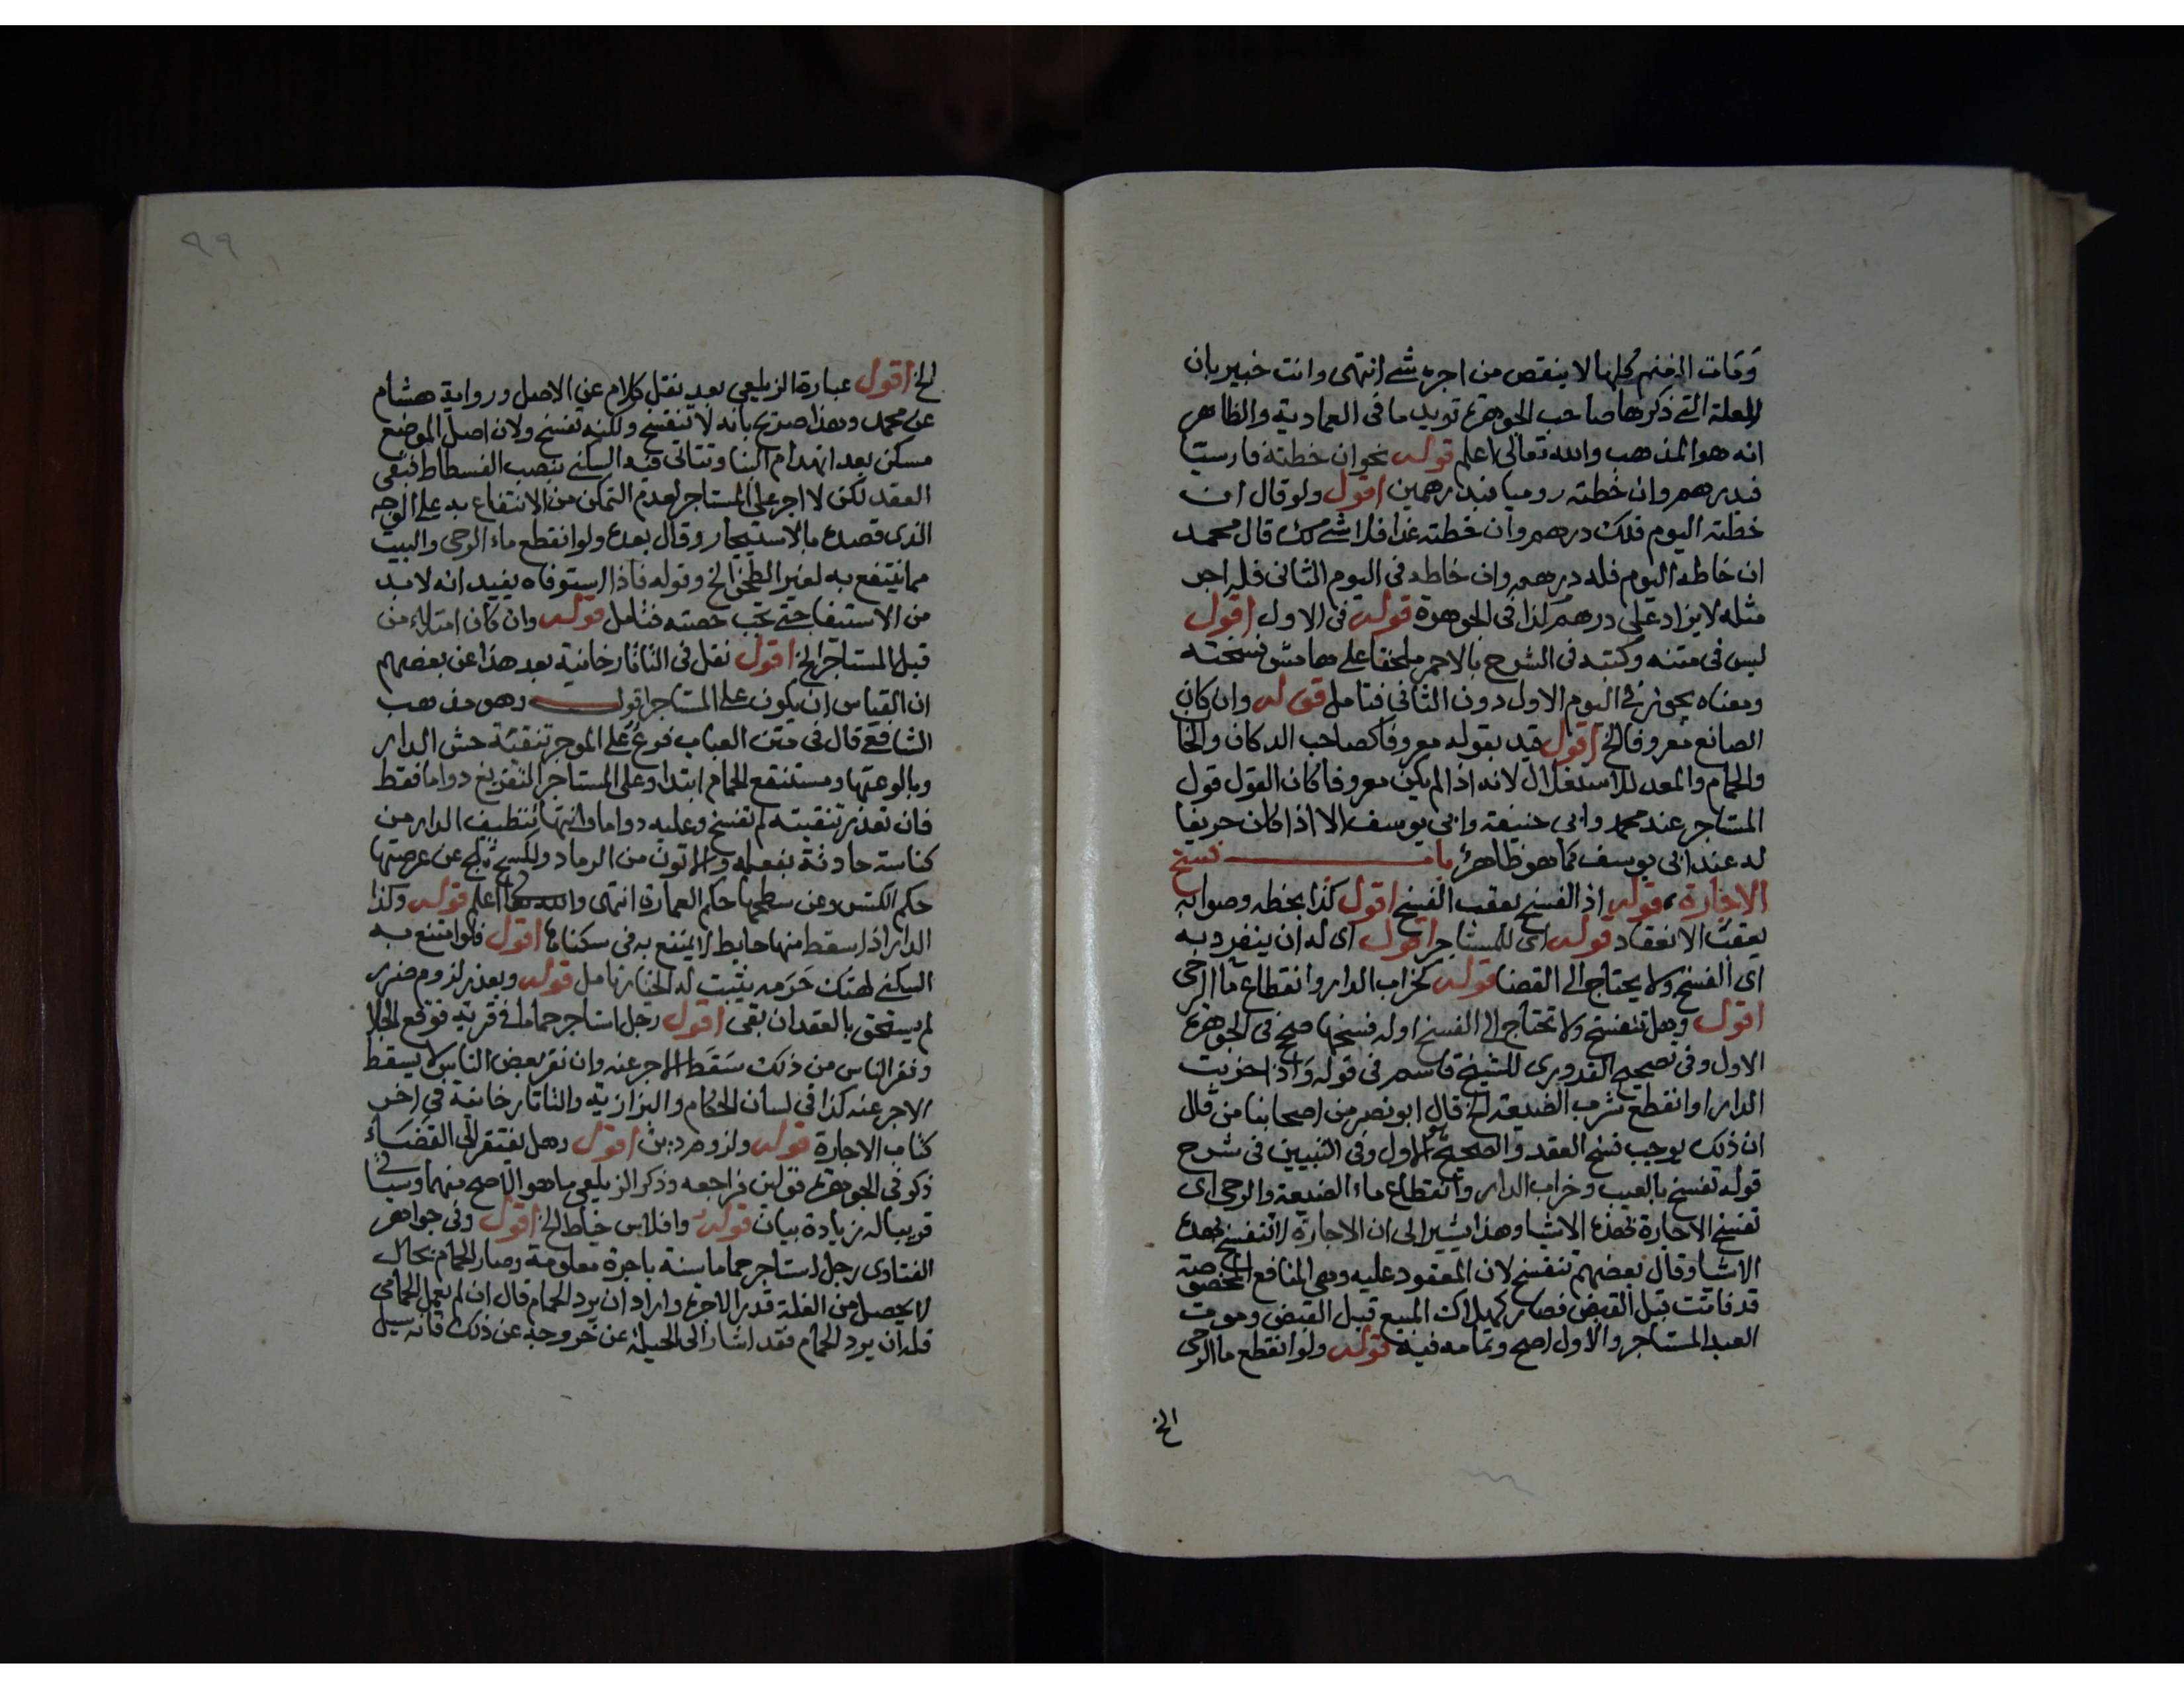 وقات الغنم كلها لا ينقص من اجره شئ انتهى وانت خبير بان
العلة التي ذكرها صاحب الجوهرة تويد ما في العمادية والظاهر
انه هو المذهب والله تعالى اعلم قوله نحو ان خطته فارسيا
فبدرهم وان خطته روميا فبدرهمين اقول ولو قال ان
خطته اليوم فلك درهم وان خطته غدا فلا شئ لك قال محمد
ان خاطه اليوم فله درهم وان خاطه في اليوم الثاني فله اجر
مثله لا يزاد على درهم كذا في الجوهرة قوله في الاول اقول
ليس في متنه وكتبه في الشرح بالاحمر ملحقا على هامش نسخته
ومعناه يجوز في اليوم الاول دون الثاني فتامل قوله وان كان
الصانع معروفا الخ اقول قيد بقوله معروفا كصاحب الدكان والخا
والحمام والمعد للاستغلال لانه اذا لم يكن معروفا كان القول قول
المستاجر عند محمد وابي حنيفة وابي يوسف الا اذا كان حريفا
له عند ابي يوسف كما هو ظاهر باب فسخ
الاجارة قوله اذ الفسخ يعقب الفسخ اقول كذا بخطه وصوابه
يعقب الانعقاد قوله اي للمستاجر اقول اي له ان ينفرد به
اي الفسخ ولا يحتاج الى القضا قوله كخراب الدار وانقطاع ما الرحى
اقول وهل تنفسخ ولا تحتاج الى الفسخ او له فسخها صحح في الجوهرة
الاول وفي تصحيح القدوري للشيخ قاسم في قوله واذا خربت
الدار او انقطع شرب الضيعة الخ قال ابو نصر من اصحابنا من قال
ان ذلك يوجب فسخ العقد والصحيح هو الاول وفي التبيين في شرح
قوله تفسخ بالعيب وخراب الدار وانقطاع ماء الضيعة والرحى اى
تفسخ الاجارة بهذه الاشيا وهذا يشير الى ان الاجارة لا تنفسخ بهذه
الاشيا وقال بعضهم تنفسخ لان المعقود عليه وهي المنافع المخصوصة
قد فاتت قبل القبض فصار كهلاك المبيع قبل القبض وموت
العبد المستاجر والاول اصح وتمامه فيه قوله ولو انقطع ما الرحى
الخ
٩٩
الخ اقول عبارة الزيلعي بعد نقل كلام عن الاصل ورواية هشام
عن محمد وهذا صريح بانه لا تنفسخ ولكنه تفسخ ولان اصل الموضع
مسكن بعد انهدام البنا وتتاتى فيه السكنى بنصب الفسطاط فبقى
العقد لكن لا اجر على المستاجر لعدم التمكن من الانتفاع به على الوجه
الذي قصده بالاستيجار وقال بعده ولو انقطع ماء الرحى والبيت
مما ينتفع به لغير الطحن الخ وقوله فاذا استوفاه يفيد انه لا بد
من الاستيفا حتى تجب حصته فتامل قوله وان كان امتلاء من
قبل المستاجر الخ اقول نقل في التاتارخانية بعد هذا عن بعضهم
ان القياس ان يكون على المستاجر اقول وهو مذهب
الشافعي قال في متن العباب فرع على الموجر تنقية حش الدار
وبالوعتها ومستنقع الحمام ابتدا وعلى المستاجر التفريغ دواما فقط
فان تعذر تنقيته لم تفسخ وعليه دواما وانتهائتنظيف الدار من
كناسة حادثة بفعله والاتون من الرماد ولكسح ثلج عن عرصتها
حكم الكنس وعن سطحها حكم العمارة انتهى والله تعالى اعلم قوله وكذا
الدار اذا سقط منها حايط لا يمتنع به في سكناها اقول فلو امتنع به
السكنى لهتك حرمه يثبت له الخيار تامل قوله وبعذر لزوم ضرر
لم يستحق بالعقد ان بقى اقول رجل استاجر حماما في قرية فوقع الجلا
ونفر الناس من ذلك سقط الاجر عنه وان نفر بعض الناس لا يسقط
الاجر عنه كذا في لسان الحكام والبزازية والتاتارخانية في اخر
كتاب الاجارة قوله ولزوم دين اقول وهل يفتقر الى القضاء
ذكر في الجوهرة قولين فراجعه وذكر الزيلعي ما هو الاصح منهما وسياتي
قريبا له زيادة بيان قوله وافلاس خياط الخ اقول وفي جواهر
الفتاوى رجل استاجر حماما سنة باجرة معلومة وصار الحمام بحال
لا يحصل من الغلة قدر الاجرة واراد ان يرد الحمام قال ان لم يعمل الحمامي
فله ان يرد الحمام فقد اشار الى الحيلة عن خروجه عن ذلك فانه سيل